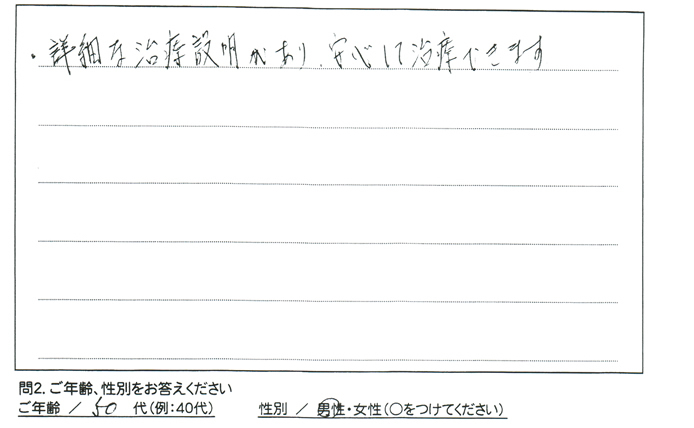 ・詳細な治療説明があり、安心して治療できます
問2. ご年齢、性別をお答えください
ご年齢 / 50 代(例:40代) 性別 / 男性・女性(○をつけてください)